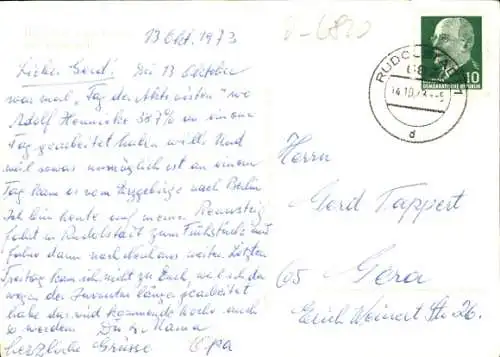 13 Okt. 1973
D-6820
Lieber Gerd! Der 13 Oktober
war mal „Tag der Aktivisten" wo
Adolf Hennicke 387% an einem
Tag gearbeitet haben will. Und
weil sowas unmöglich ist an einem
Tag kam er vom Erzgebirge nach Berlin
Ich bin heute auf meiner Rennsteig
fahrt in Rudolstadt zum Frühstück und
fahre dann noch weiter. Letzten
Freitag kam ich nicht zu Euch, weil ich da
wegen der Inventur länger gearbeitet
habe das wird kommende Woche auch
so werden. Dir u. Mama
herzliche Grüsse Opa
RUDOLSTADT 1
68
14.10.73
d
10
DEMOKRATISCHE REPUBLIK
Herrn
Gerd Tappert
65 Gera
Erich Weinert Str 26.